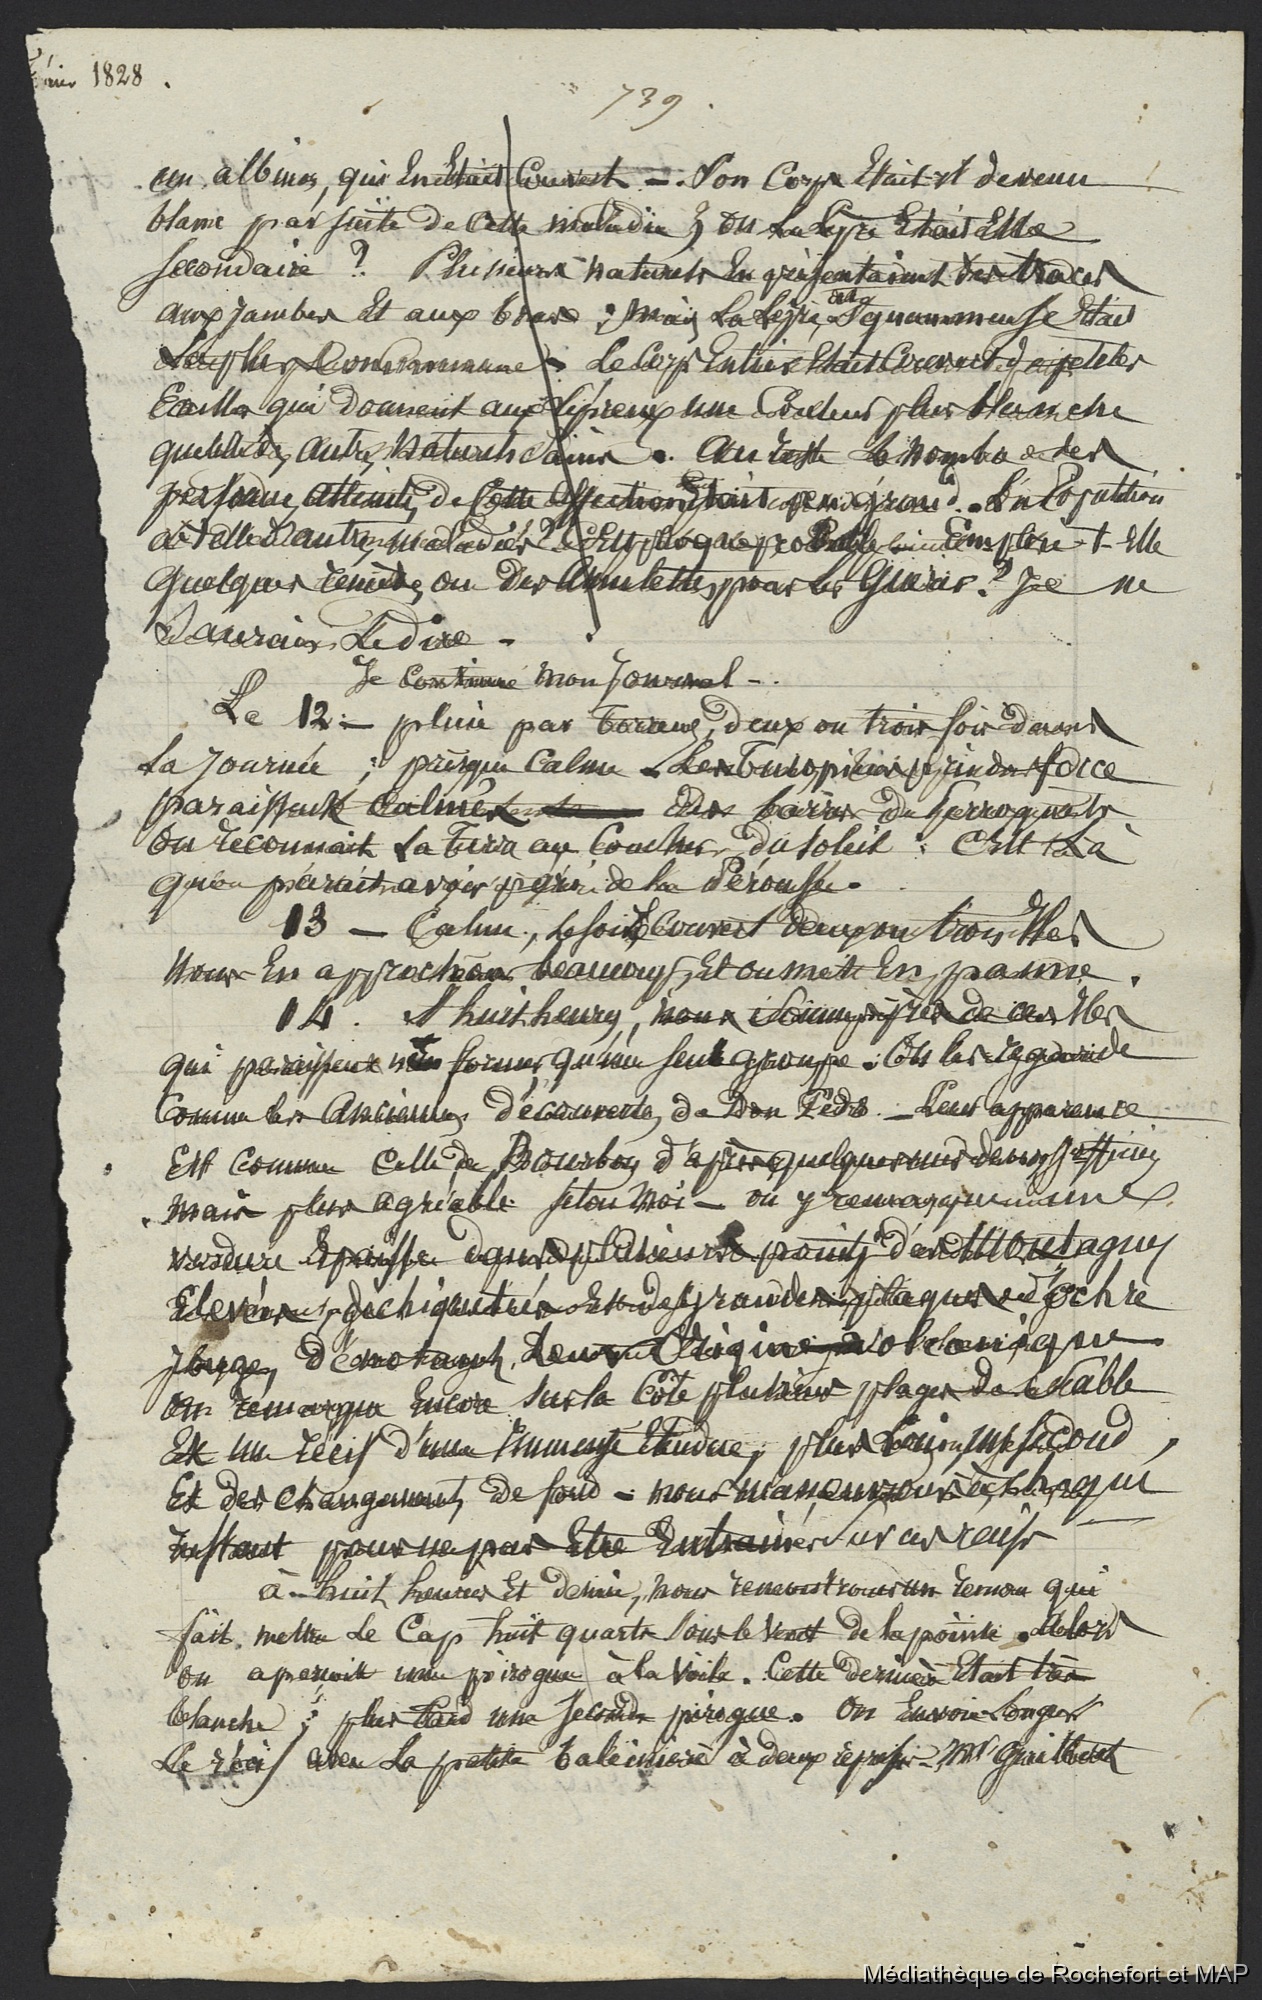 février 1828.
739.
un albinos, qui En Etait Couvert. — Son Corps Etait-il devenu
blanc par suite de Cette maladie, ou La Lèpre Etait Elle
secondaire ? Plusieurs naturels En présentaient des traces
aux jambes Et aux bras ; mais La Lèpre squammeuse Etait
La plus Commune. Le Corps Entier Etait Couvert de petites
Ecailles qui donnent aux Lépreux une Couleur plus blanche
que celle des autres naturels sains. Au reste Le nombre des
personnes atteintes de Cette affection Etait peu grand. La Population
a-t-elle d'autres maladies ? C'est presque probable Emploie-t-Elle
quelques remèdes ou des Amulettes pour les Guérir ? Je ne
Saurais Le dire —
Je Continue mon Journal —.
Le 12 — pluie par torrens, deux ou trois fois dans
La Journée ; presque Calme.
paraissent Calmés des barres de Perroquets
on reconnait La Terre au Coucher du soleil : C'est Là
qu'on parait avoir péri de La Pérouse.
13 — Calme, Le soir on Couvert deux ou trois Iles
nous En approchons beaucoup, Et on met En panne.
14. A huit heures, nous sommes près de ces Iles
qui paraissent n'en former qu'un seul groupe. On les regarde
Comme les Anciennes découvertes de Don Pedro — Leur apparence
Est comme Celle de Bourbon d'après quelques uns de nos officiers
mais plus agréable selon moi — on y remarque une
verdure Epaisse dans plusieurs points des Montagnes
Elevées, déchiquetées Et de grandes plaques d'ochre
rouge, dénotant Leur Origine volcanique
on remarque Encore sur la Côte plusieurs plages de sable
Et un récif d'une immense Etendue, plus Loin un second,
Et des changements de fond — nous manœuvrons à chaque
instant pour ne pas Etre Entrainés sur ces récifs —
à huit heures Et demie, nous rencontrons un remou qui
fait mettre Le Cap huit quarts sous le vent de la pointe. Alors
on apercoit une pirogue à la voile. Cette dernière Etait très
blanche ; plus tard une seconde pirogue. On Envoie Longer
Le récif avec La petite baleinière à deux reprises — Mr Guilbert